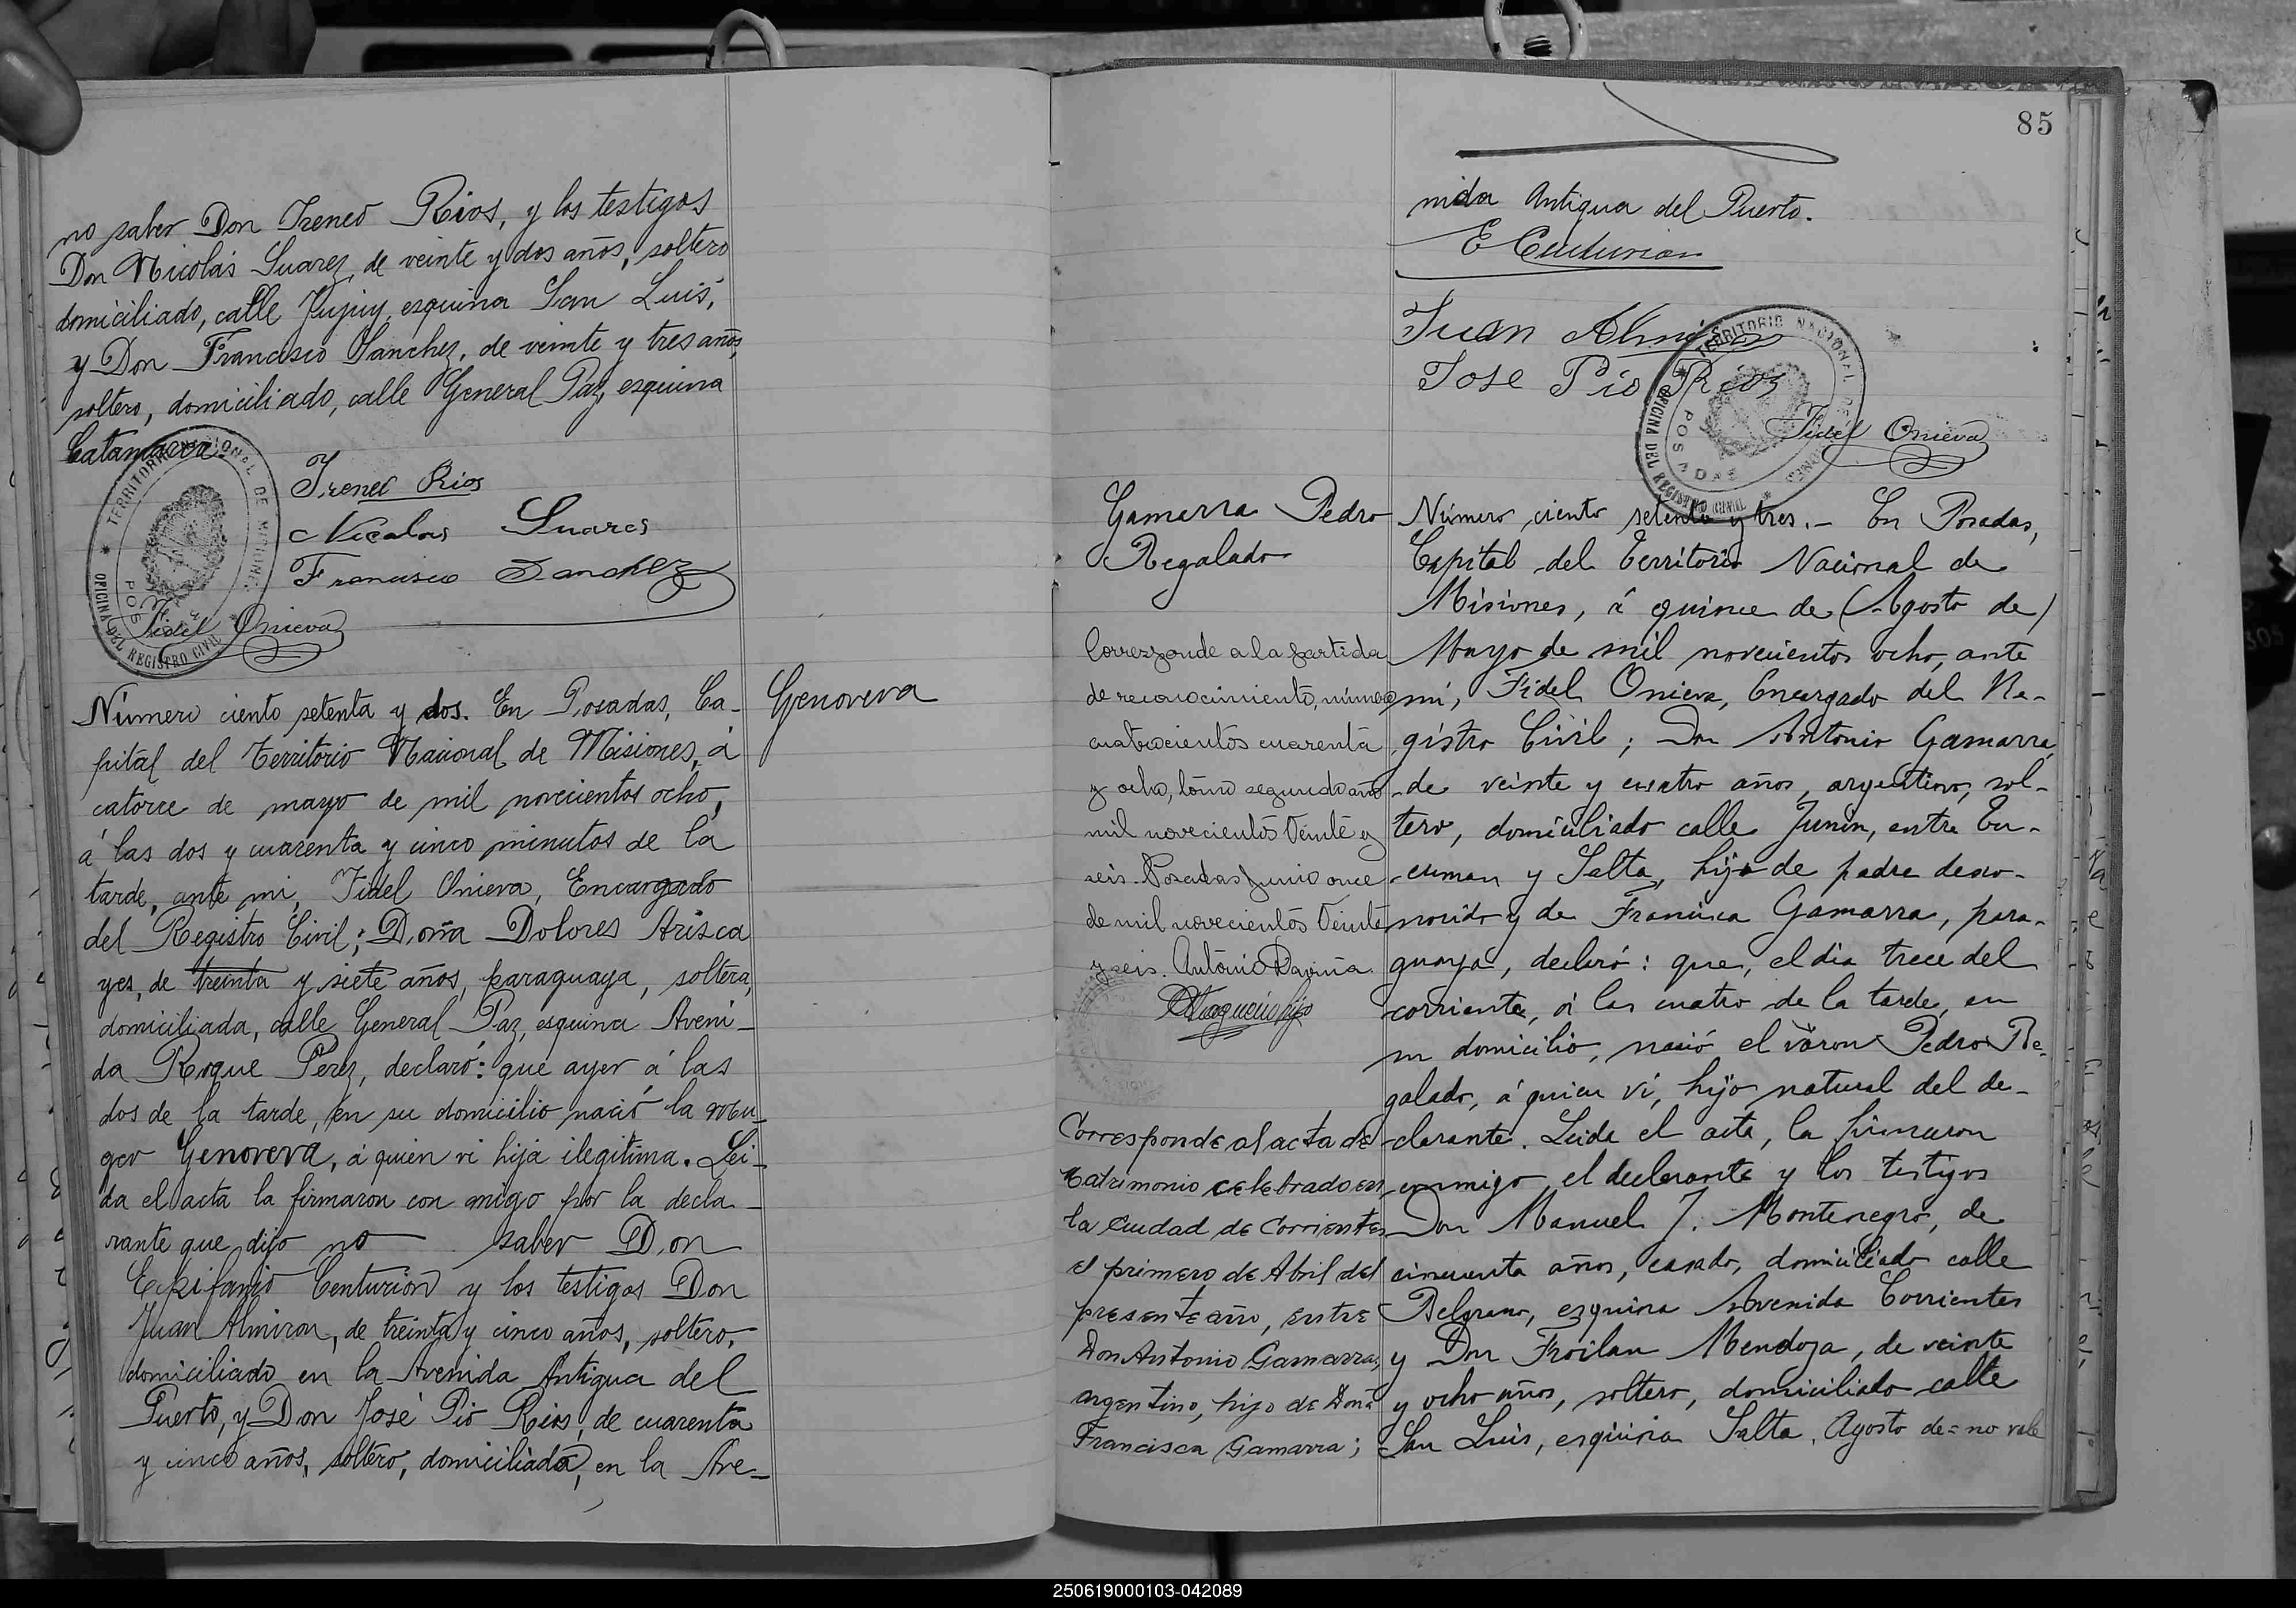 no saber Don Ireneo Rios, y los testigos
Don Nicolás Suarez, de veinte y dos años, soltero
domiciliado, calle Jujuy, esquina San Luis,
y Don Francisco Sanchez, de veinte y tres años,
soltero, domiciliado, calle General Paz, esquina
Catamarca.
Ireneo Rios
Nicolas Suares
Francisco Sanchez
Fidel Onieva
TERRITORIO NACIONAL DE MISIONES
OFICINA DEL REGISTRO CIVIL
POSADAS
Número ciento setenta y dos. En Posadas, Ca-
pital del Territorio Nacional de Misiones, á
catorce de mayo de mil novecientos ocho,
á las dos y cuarenta y cinco minutos de la
tarde, ante mi, Fidel Onieva, Encargado
del Registro Civil; Doña Dolores Arisca
yes, de treinta y siete años, paraguaya, soltera,
domiciliada, calle General Paz, esquina Aveni-
da Roque Perez, declaró: que ayer á las
dos de la tarde, en su domicilio nació la
Genoveva, á quien vi hija ilegitima. Lei-
da el acta la firmaron con migo por la decla-
rante que dijo no saber Don
Epifanio Centurion y los testigos Don
Juan Almiron, de treinta y cinco años, soltero,
domiciliado en la Avenida Antigua del
Puerto, y Don José Pio Rios, de cuarenta
y cinco años, soltero, domiciliado, en la Ave-
Genoveva
85
nida Antigua del Puerto.
E Centurion
Juan Almiron
Jose Pio Rios
Fidel Onieva
TERRITORIO NACIONAL DE MISIONES
OFICINA DEL REGISTRO CIVIL
POSADAS
Gamarra Pedro
Regalado
Corresponde a la partida
de reconocimiento, número
cuatrocientos cuarenta
y ocho, tomo segundo año
mil novecientos veinte y
seis. Posadas Junio once
de mil novecientos veinte
y seis. Antonio
Corresponde al acta de
matrimonio celebrado en
la Ciudad de Corrientes
el primero de Abril del
presente año, entre
Don Antonio Gamarra,
argentino, hijo de Doña
Francisca Gamarra;
Número ciento setenta y tres.- En Posadas,
Capital del Territorio Nacional de
Misiones, á quince de (Agosto de)
Mayo de mil novecientos ocho, ante
mi, Fidel Onieva, Encargado del Re-
gistro Civil; Don Antonio Gamarra,
de veinte y cuatro años, argentino, sol-
tero, domiciliado calle Junin, entre Tu-
cuman y Salta, hijo de padre desco-
nocido y de Francisca Gamarra, para-
guaya, declaró: que, el dia trece del
corriente, á las cuatro de la tarde, en
su domicilio, nació el varon Pedro Re-
galado, á quien vi, hijo natural del de-
clarante. Leida el acta, la firmaron
conmigo el declarante y los testigos
Don Manuel J. Montenegro, de
cincuenta años, casado, domiciliado calle
Belgrano, esquina Avenida Corrientes
y Don Froilan Mendoza, de veinte
y ocho años, soltero, domiciliado calle
San Luis, esquina Salta. Agosto de = no vale
250619000103-042089